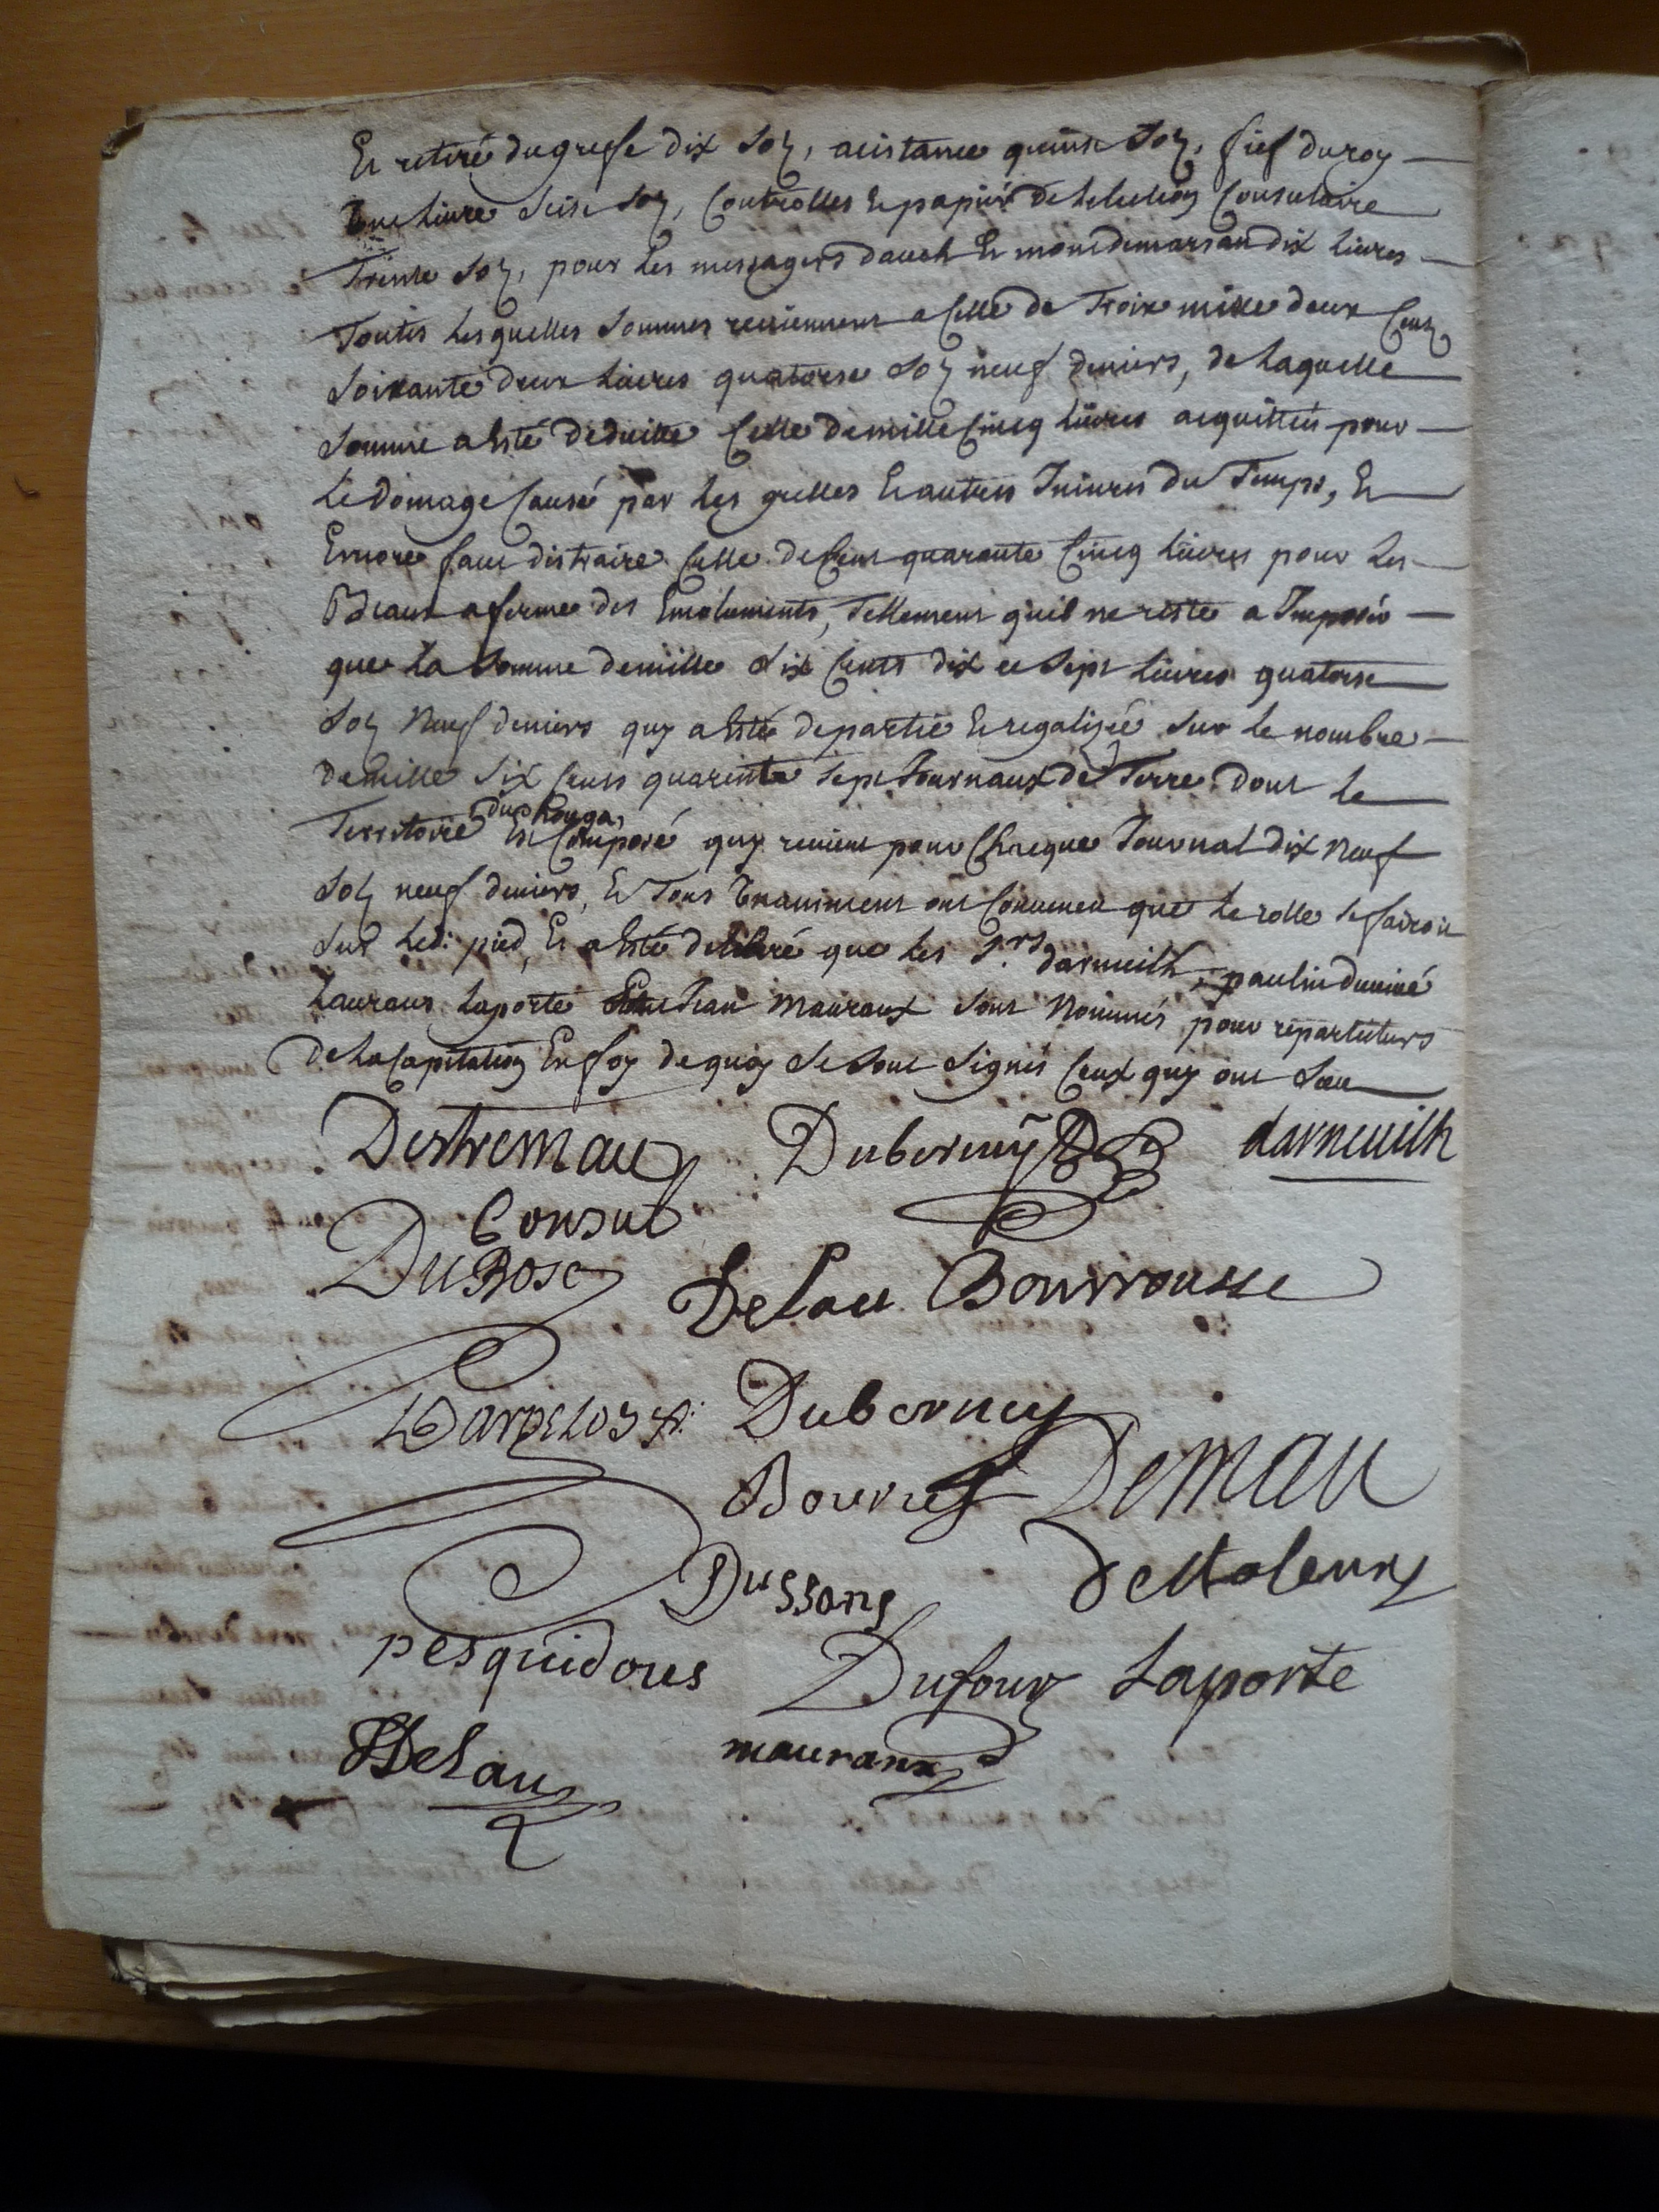 Et retiré du grefe dix sols, acistance quinse sols, fief du roy
une livre seise sols, Controlles et papier de l'election Consulaire
Trente sols, pour les messagers dauch et mondemarsan dix livres
Toutes lesquelles sommes reviennent a celle de Trois mille deux Cens
soixante deux livres quatorse sols neuf deniers, de laquelle
somme a esté deduitte Celle de mille Cincq livres acquittés pour
le domage Causé par les grelles et autres Iniures du Temps, et
Encore faut distraire Celle de Cent quarante Cincq livres pour les
Beaux a ferme des Emoluments, Tellement quil ne reste a Imposer
que la somme de mille dix Cents dix et sept livres quatorse
sols Neuf deniers quy a esté departie et regalizée sur le nombre
de mille six Cents quarente sept Journaux de Terre dont le
Territoire du houga, est Composé quy revient pour Chaque Journal dix Neuf
sols neuf deniers, Et Tous Unanimement ont Convenu que le rolle se fairoit
sur led: pied, Et a esté deliberé que les Srs darneuilh, paulin duminé
Laurans Laporte Jean Mauraux sont Nommés pour repartiteurs
de la Capitation En foy de quoy se sont signés Ceux quy ont sceu
Destremau Duberney darneuilh
Consul
DuBosc Delau Bourrousse
Darpelos Duberney
Bourrus Demau
Dussans deMoleur
pesquidous Dufour Laporte
Delau mauraux